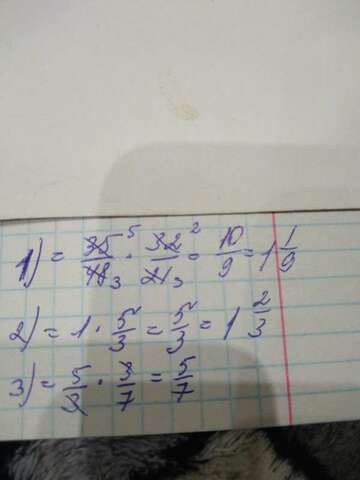 1) = 35/48 · 32/21 = 10/9 = 1 1/9
2) = 1 · 5/3 = 5/3 = 1 2/3
3) = 5/3 · 3/7 = 5/7